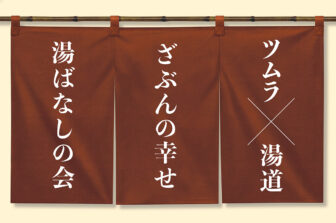 ツムラ×湯道
ざぶんの幸せ
湯ばなしの会